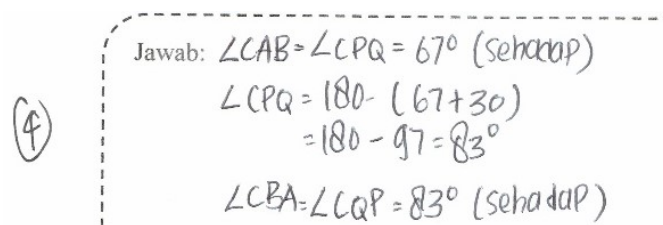 Jawab: ∠CAB = ∠CPQ = 67° (Sehadap)
④ ∠CPQ = 180 - (67+30)
= 180 - 97 = 83°
∠CBA = ∠CQP = 83° (Sehadap)